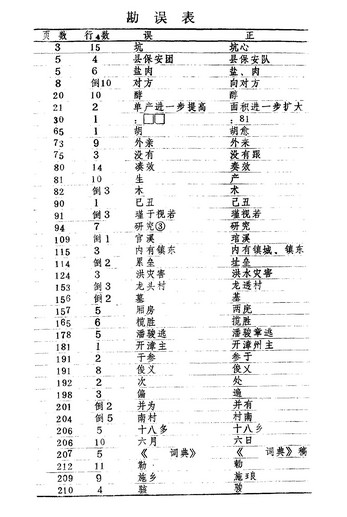 勘误表
页数 行数 误 正
3 15 坑 坑心
5 4 县保安团 县保安队
5 6 盐肉 盐、肉
8 倒10 对方 向对方
20 10 醇
21 2 单产进一步提高 面积进一步扩大
30 1 ：□□ ：81
65 1 胡 胡愈
73 9 外亲 外来
75 3 没有 没有跟
80 14 凑效 奏效
81 10 生 产
82 倒3 本 术
90 1 己丑 己丑
91 倒3 瑾于视若 瑾视若
94 7 研究③ 研究
109 倒1 官溪 琯溪
115 3 内有镇东 内有镇城、镇东
114 倒2 累垒 垒
124 3 洪灾害 洪水灾害
153 倒3 龙头村 龙透村
156 倒2 墓 墓
157 5 厢房 两庑
165 6 榄胜 揽胜
178 5 潘骏逃 潘骏章逃
181 1 开漳主 开漳州主
191 2 于参 参于
191 8 俊义 俊乂
192 2 次 处
198 3 偏
201 倒2 并为 并有
204 倒5 南村 村南
206 5 十八多 十八乡
206 10 六月 六日
207 5 《 词典》 《 词典》稿
212 11 勒 勒
209 9 施乡 施琅
210 4 驻 骏